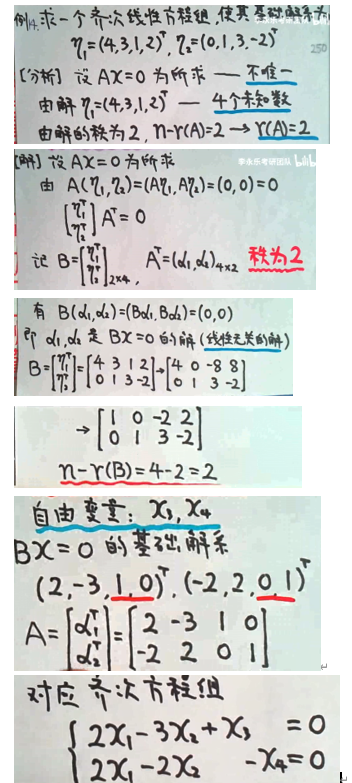 例14. 求一个齐次线性方程组, 使其基础解系为
η₁=(4,3,1,2)ᵀ, η₂=(0,1,3,-2)ᵀ
250
[分析] 设 AX=0 为所求 — 不唯一
由解 η₁=(4,3,1,2)ᵀ — 4个未知数
由解的秩为2, n-r(A)=2 → r(A)=2
[解] 设 AX=0 为所求
李永乐考研团队 bilibili
由 A(η₁,η₂)=(Aη₁,Aη₂)=(0,0)=0
[η₁ᵀ
η₂ᵀ] Aᵀ=0
记 B=[η₁ᵀ
η₂ᵀ]₂ₓ₄, Aᵀ=(α₁,α₂)₄ₓ₂ 秩为2
有 B(α₁,α₂)=(Bα₁,Bα₂)=(0,0)
即 α₁,α₂ 是 BX=0 的解 (线性无关的解)
B=[η₁ᵀ]=[4 3 1 2]→[4 0 -8 8]
[η₂ᵀ] [0 1 3 -2] [0 1 3 -2]
→ [1 0 -2 2]
[0 1 3 -2]
n-r(B)=4-2=2
自由变量: x₃, x₄
BX=0 的基础解系
(2,-3,1,0)ᵀ, (-2,2,0,1)ᵀ
A=[α₁ᵀ]=[2 -3 1 0]
[α₂ᵀ] [-2 2 0 1]
对应齐次方程组
{2x₁-3x₂+x₃ =0
2x₁-2x₂ -x₄=0